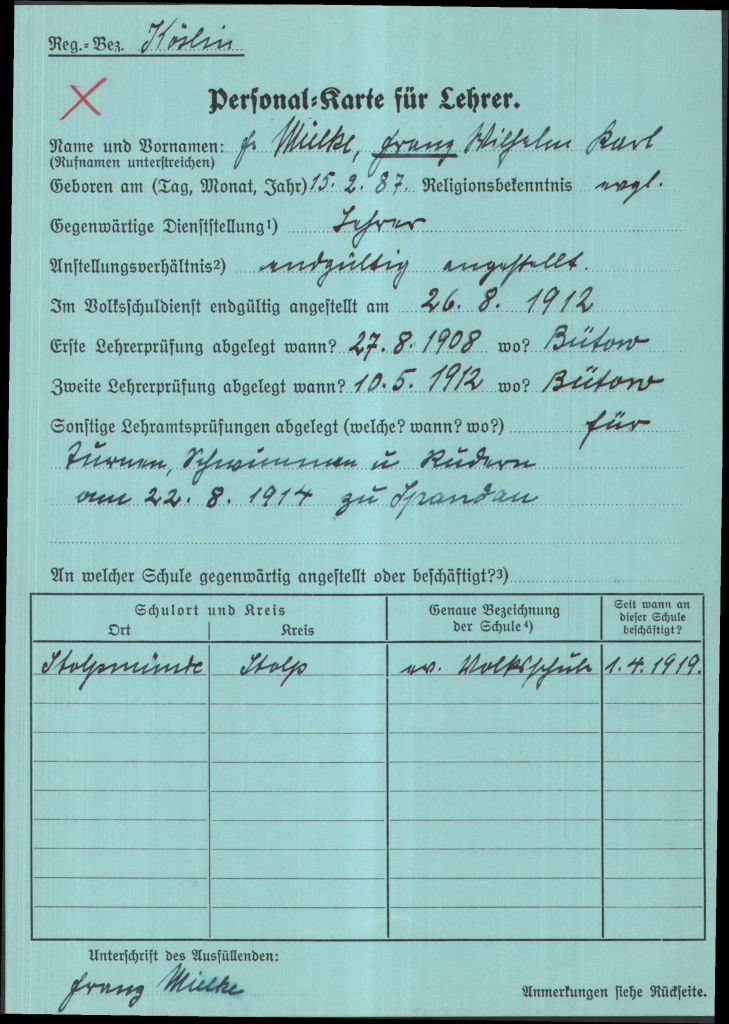 Reg.-Bez. Köslin
Personal-Karte für Lehrer.
Name und Vornamen: Mielke, Franz Wilhelm Karl
(Rufnamen unterstreichen)
Geboren am (Tag, Monat, Jahr) 15. 2. 87. Religionsbekenntnis evgl.
Gegenwärtige Dienststellung1) Lehrer
Anstellungsverhältnis2) endgültig angestellt.
Im Volksschuldienst endgültig angestellt am 26. 8. 1912
Erste Lehrerprüfung abgelegt wann? 27. 8. 1908 wo? Bütow
Zweite Lehrerprüfung abgelegt wann? 10. 5. 1912 wo? Bütow
Sonstige Lehramtsprüfungen abgelegt (welche? wann? wo?) für
Turnen, Schwimmen u Rudern
am 22. 8. 1914 zu Spandau
An welcher Schule gegenwärtig angestellt oder beschäftigt?3)
Schulort und Kreis Genaue Bezeichnung der Schule4) Seit wann an dieser Schule beschäftigt?
Ort Kreis
Stolpmünde Stolp ev. Volksschule 1. 4. 1919.
Unterschrift des Ausfüllenden:
Franz Mielke
Anmerkungen siehe Rückseite.